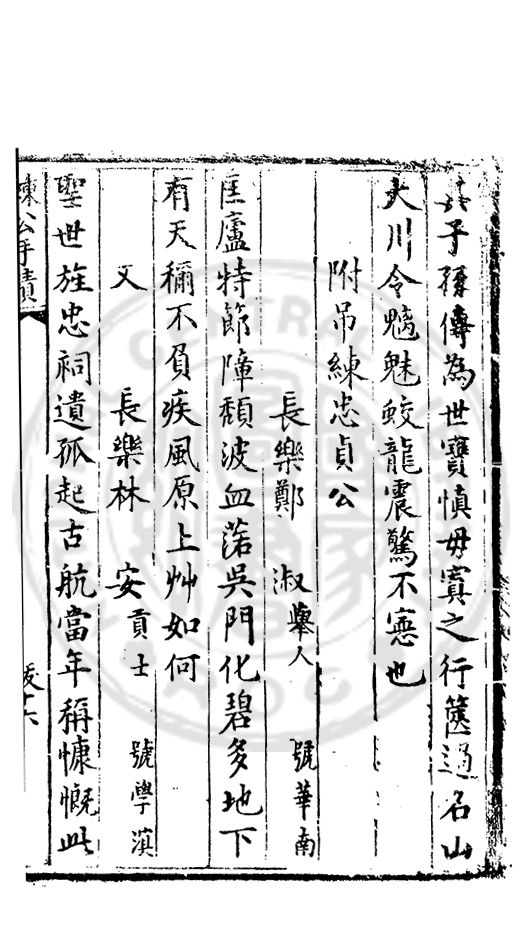 其子孫傳為世寶慎毋寘之行篋過名山
大川令魑魅蛟龍震驚不寧也
附吊練忠貞公
長樂鄭　淑舉人　號華南
匡廬特節障頹波血落吳門化碧多地下
有天稱不負疾風原上艸如何
又　長樂林　安貢士　號學濱
聖世旌忠祠遺孤起古航當年稱慷慨此
練公手蹟